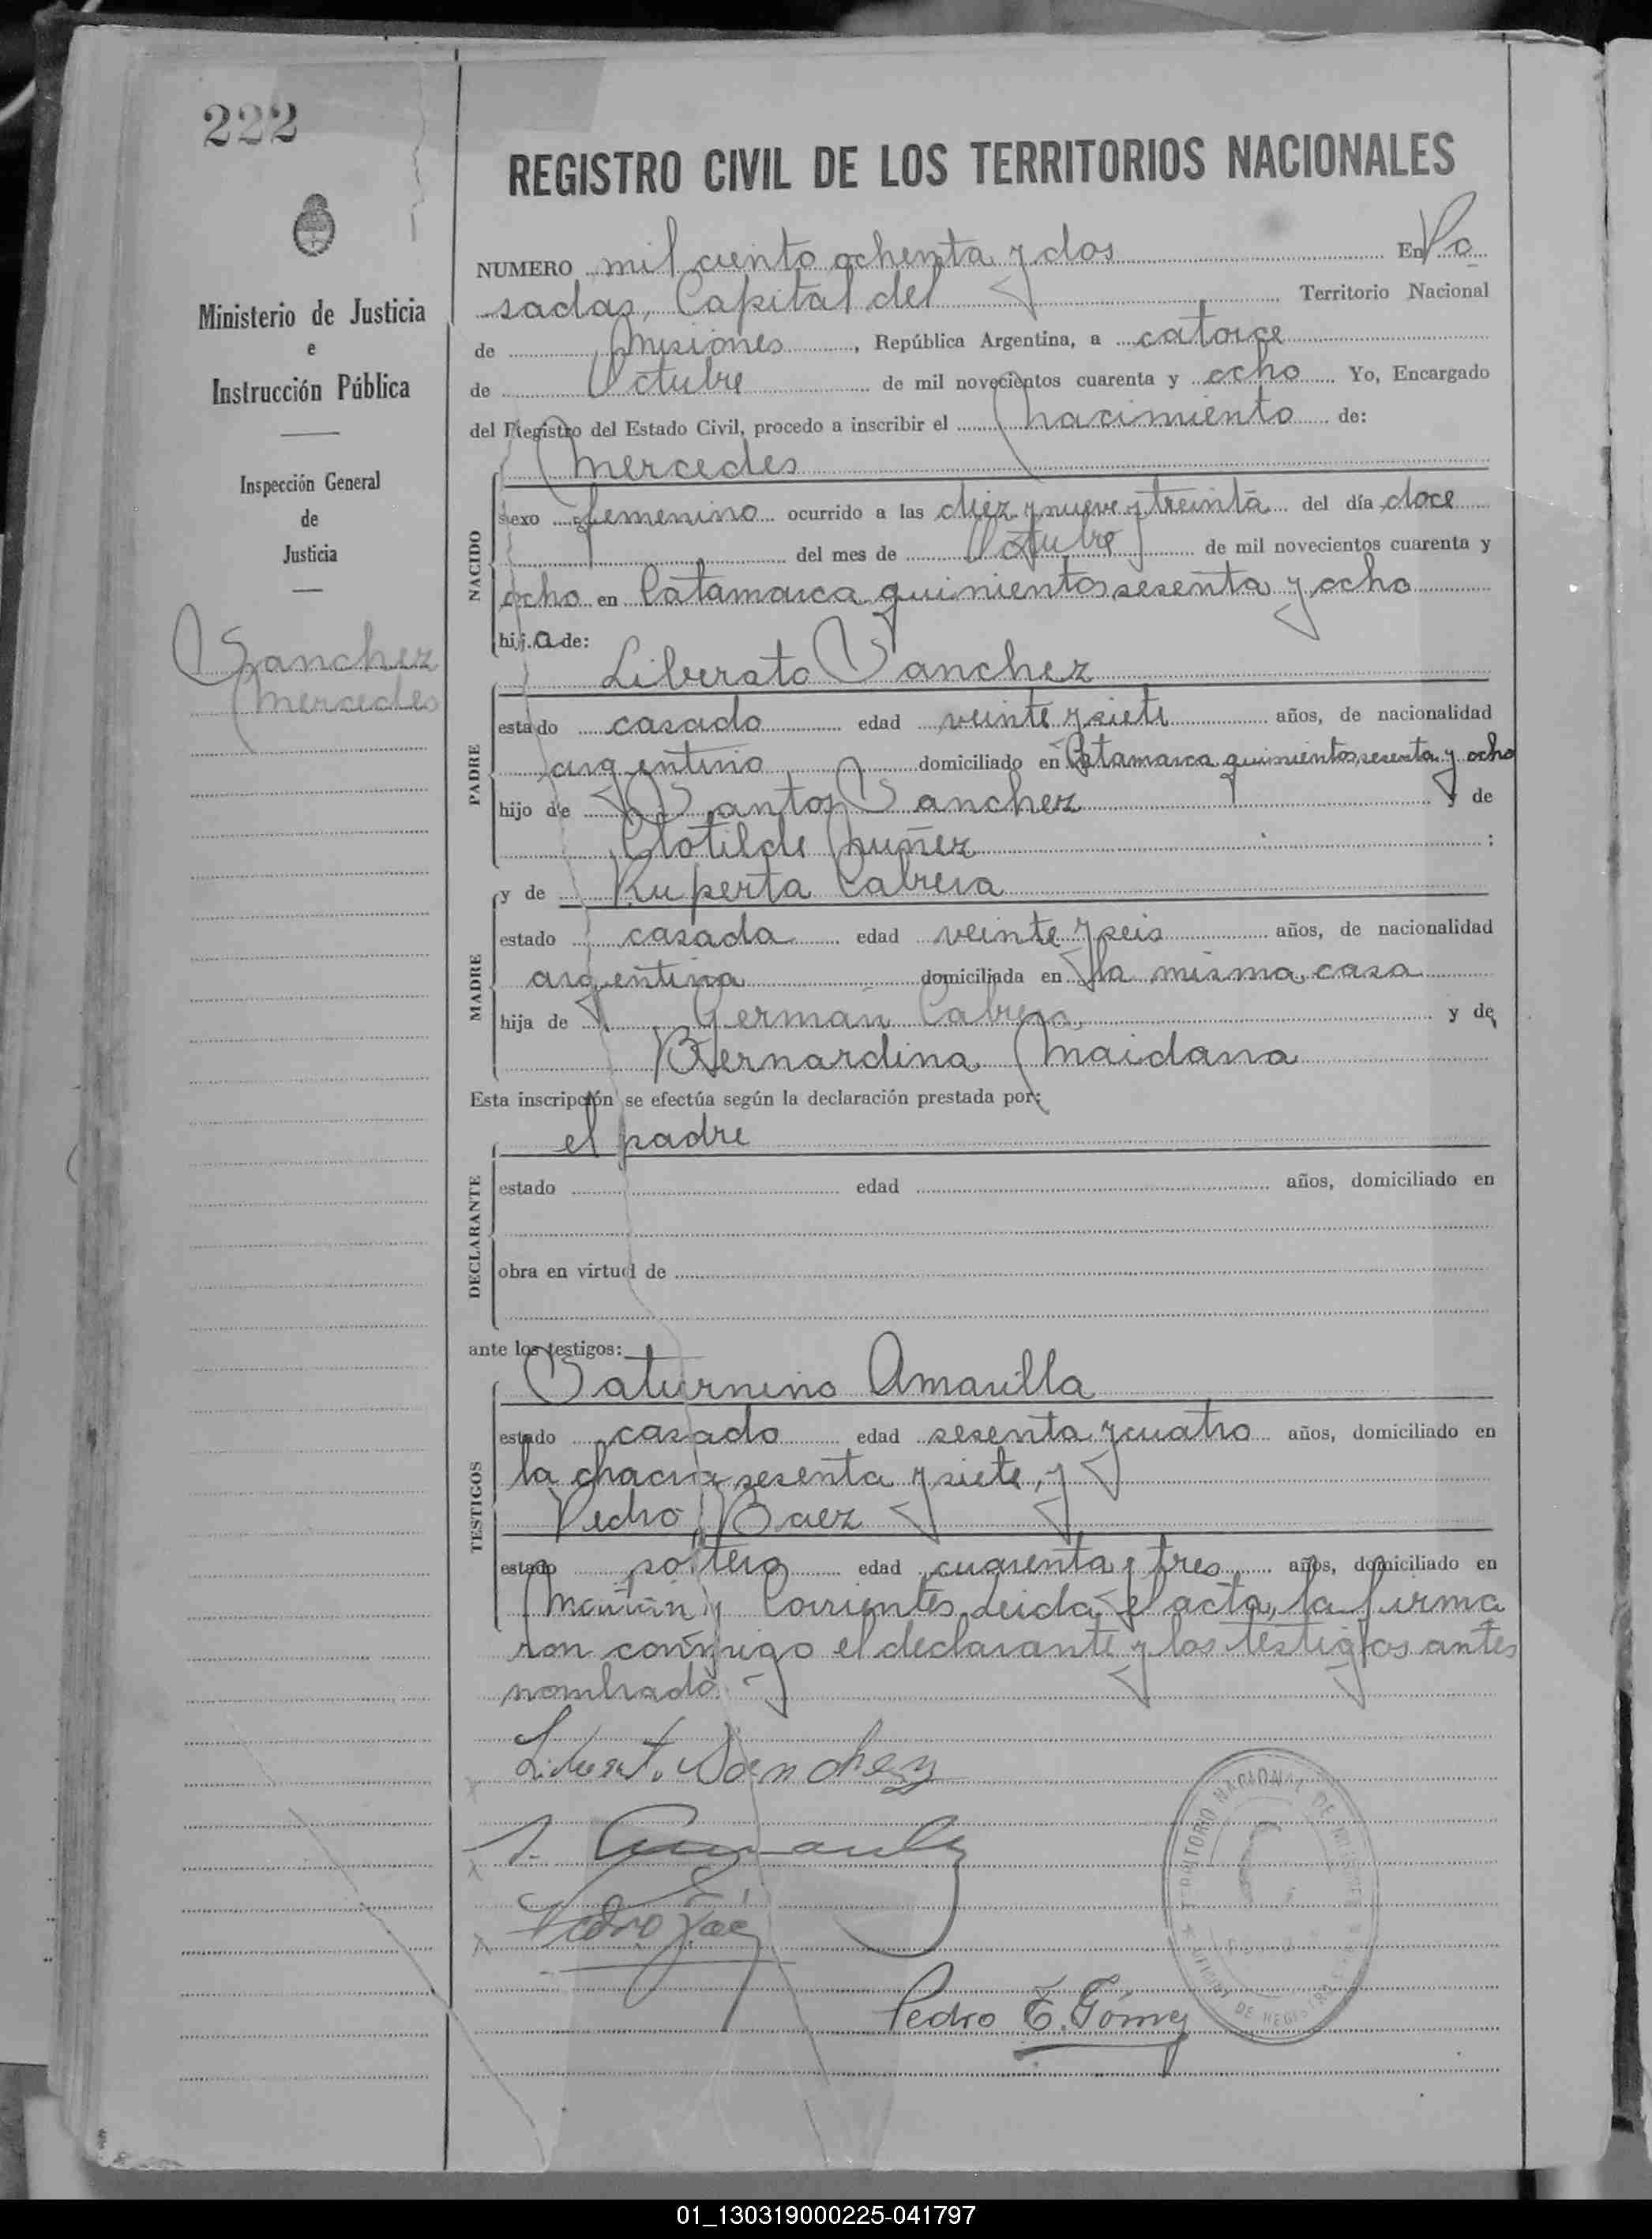 222
REGISTRO CIVIL DE LOS TERRITORIOS NACIONALES
NUMERO mil ciento ochenta y dos En Po
sadas, Capital del Territorio Nacional
de Misiones, República Argentina, a catorce
de Octubre de mil novecientos cuarenta y ocho Yo, Encargado
del Registro del Estado Civil, procedo a inscribir el nacimiento de:
Mercedes
Ministerio de Justicia
e
Instrucción Pública
Inspección General
de
Justicia
Sanchez
Mercedes
NACIDO
sexo femenino ocurrido a las diez y nueve y treinta del día doce
del mes de Octubre de mil novecientos cuarenta y
ocho en Catamarca quinientos sesenta y ocho
hij.a de:
Liberato Sanchez
PADRE
estado casado edad veinte y siete años, de nacionalidad
argentino domiciliado en Catamarca quinientos sesenta y ocho
hijo de Santos Sanchez y de
Clotilde Nuñez ;
y de Ruperta Cabrera
MADRE
estado casada edad veinte y seis años, de nacionalidad
argentina domiciliada en la misma casa
hija de Germán Cabrera y de
Bernardina Maidana
Esta inscripción se efectúa según la declaración prestada por:
el padre
DECLARANTE
estado edad años, domiciliado en
obra en virtud de
ante los testigos:
Saturnino Amarilla
TESTIGOS
estado casado edad sesenta y cuatro años, domiciliado en
la chacra sesenta y siete, y
Pedro Baez
estado soltero edad cuarenta y tres años, domiciliado en
y Corrientes. Leida el acta, la firma
ron conmigo el declarante y los testigos antes
nombrado.
Liberat. Sanchez
Pedro E. Gómez
TERRITORIO NACIONAL DE MISIONES
OFICINA DE REGISTRO
01_130319000225-041797